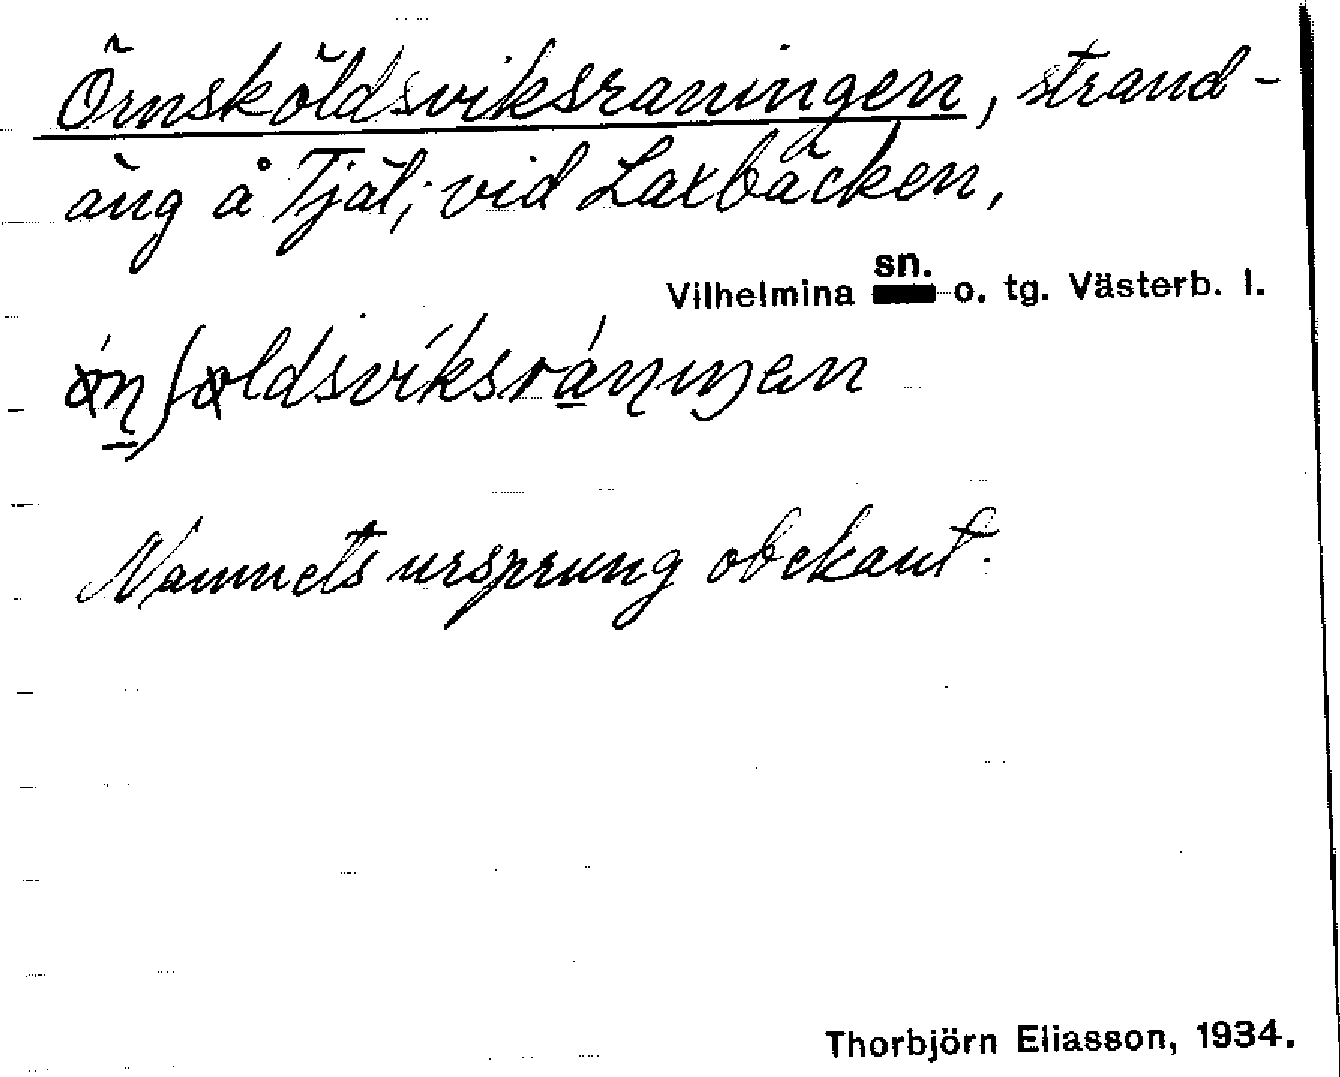 Örnsköldsviksraningen, strand-
äng å Tjäl, vid Laxbäcken,
Vilhelmina sn. o. tg. Västerb. l.
Namnets ursprung obekant.
Thorbjörn Eliasson, 1934.